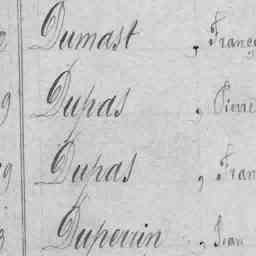 2 Dumast , Franç
9 Dupas , Pierre
9 Dupas , Fran
3 Duperrin , Jean